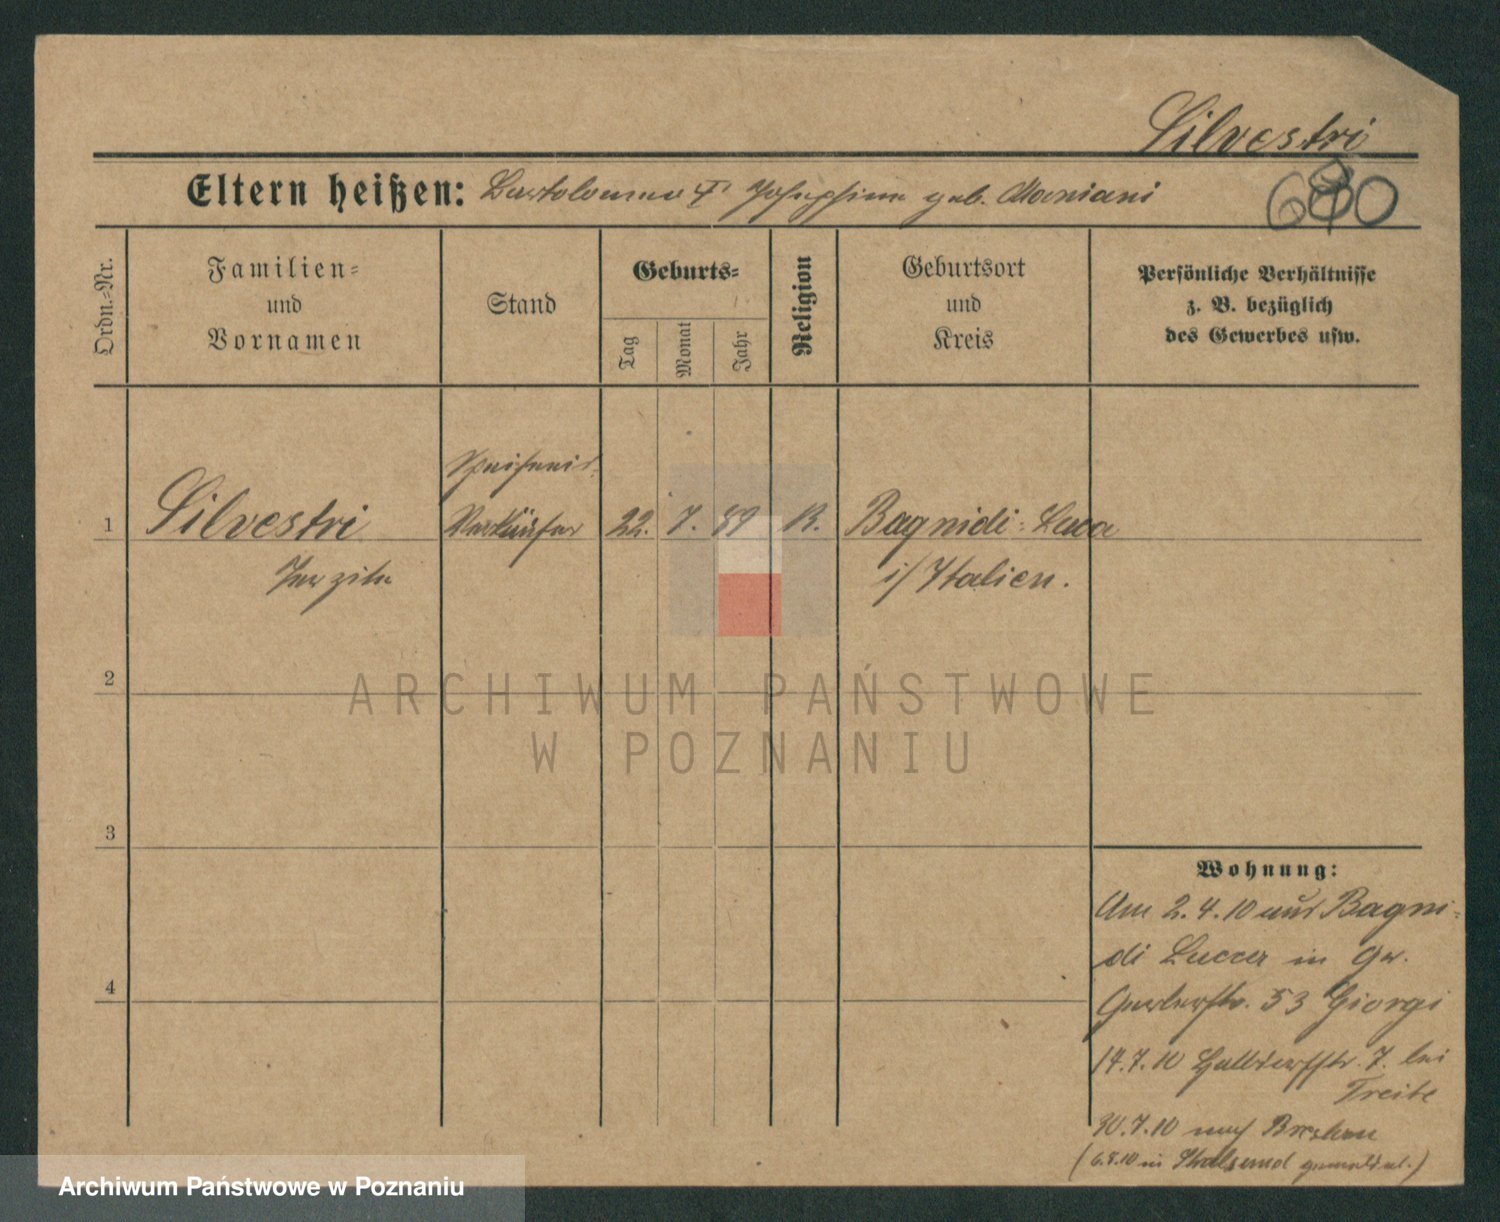 Silvestri
Eltern heißen: Bartolomeo u. Josephine geb. Mariani
680
Ordn.=Nr.
Familien=
und
Vornamen
Stand
Geburts=
Tag
Monat
Jahr
Religion
Geburtsort
und
Kreis
Persönliche Verhältnisse
z. B. bezüglich
des Gewerbes usw.
Speiseeis
1 Silvestri Verkäufer 22. 7. 89 K. Bagnidi=Luca
i/Italien.
2
ARCHIWUM PAŃSTWOWE
W POZNANIU
3
4
Wohnung:
Am 2.4.10 aus Bagni=
di Lucca in Gr.
Gerberstr. 53 Giorgi
14.7.10 Halbdorfstr. 7. bei
Treite
30.7.10 nach Breslau
(6.8.10 in gemeldet.)
Archiwum Państwowe w Poznaniu